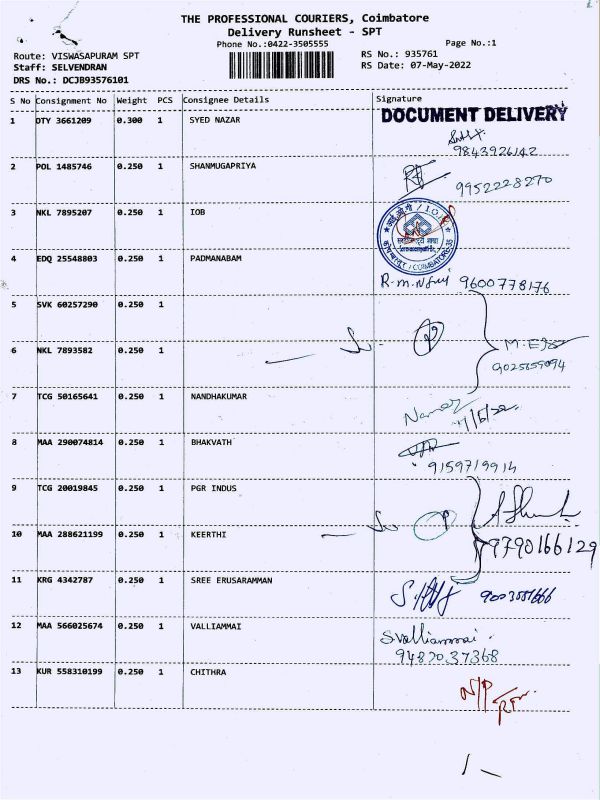 THE PROFESSIONAL COURIERS, Coimbatore
Delivery Runsheet - SPT
Phone No.:0422-3505555
Page No.:1
Route: VISWASAPURAM SPT
Staff: SELVENDRAN
DRS No.: DCJB93576101
RS No.: 935761
RS Date: 07-May-2022
S No Consignment No Weight PCS Consignee Details Signature
DOCUMENT DELIVERY
1 DTY 3661209 0.300 1 SYED NAZAR
9843926142
2 POL 1485746 0.250 1 SHANMUGAPRIYA
9952228270
3 NKL 7895207 0.250 1 IOB
COIMBATORE
4 EDQ 25548803 0.250 1 PADMANABAM
9600778176
5 SVK 60257290 0.250 1
6 NKL 7893582 0.250 1
9025659094
7 TCG 50165641 0.250 1 NANDHAKUMAR
8 MAA 290074814 0.250 1 BHAKVATH
9159719914
9 TCG 20019845 0.250 1 PGR INDUS
10 MAA 288621199 0.250 1 KEERTHI
9790166129
11 KRG 4342787 0.250 1 SREE ERUSARAMMAN
12 MAA 566025674 0.250 1 VALLIAMMAI
S.Valliammai.
9487037368
13 KUR 558310199 0.250 1 CHITHRA
N/P